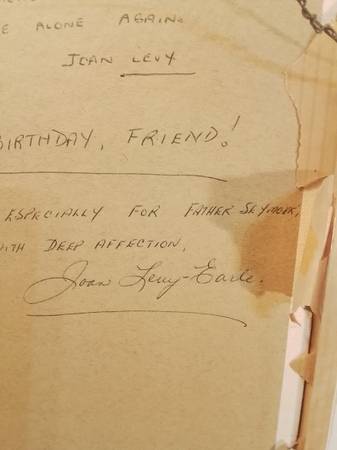 E ALONE AGAIN.
JOAN LEVY
BIRTHDAY, FRIEND!
ESPECIALLY FOR FATHER SEYMOUR,
WITH DEEP AFFECTION,
Joan Levy-Earle.